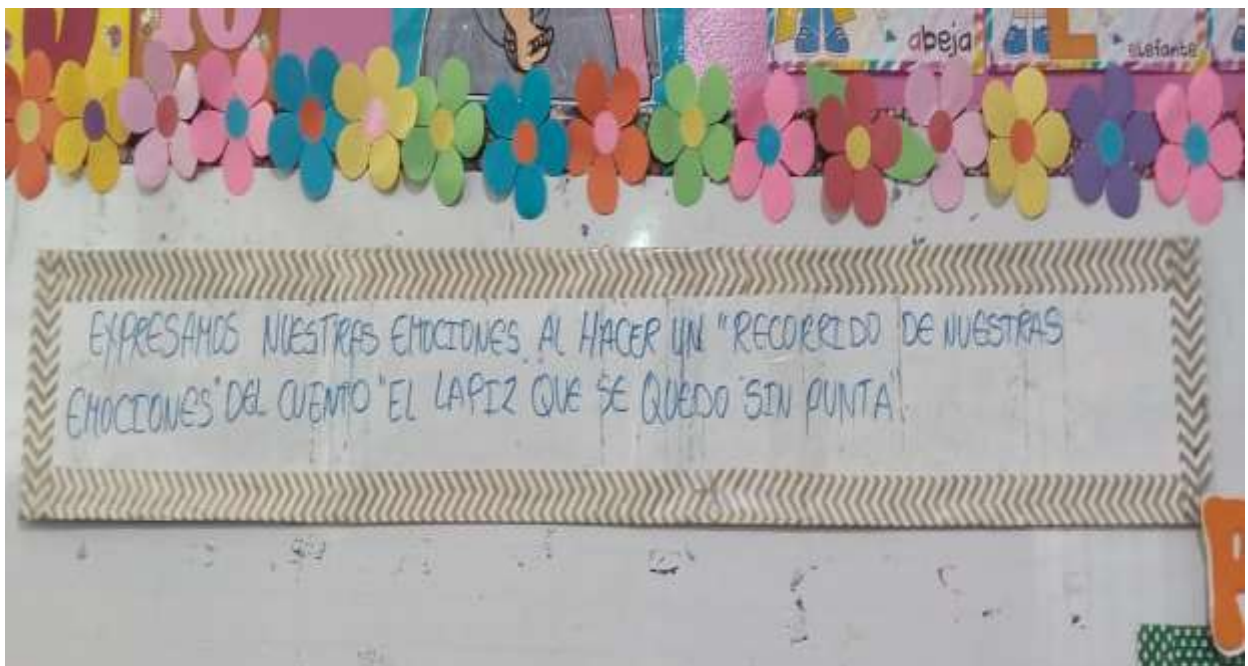 abeja
elefante
EXPRESAMOS NUESTRAS EMOCIONES AL HACER UN "RECORRIDO DE NUESTRAS
EMOCIONES" DEL CUENTO "EL LAPIZ QUE SE QUEDO SIN PUNTA".